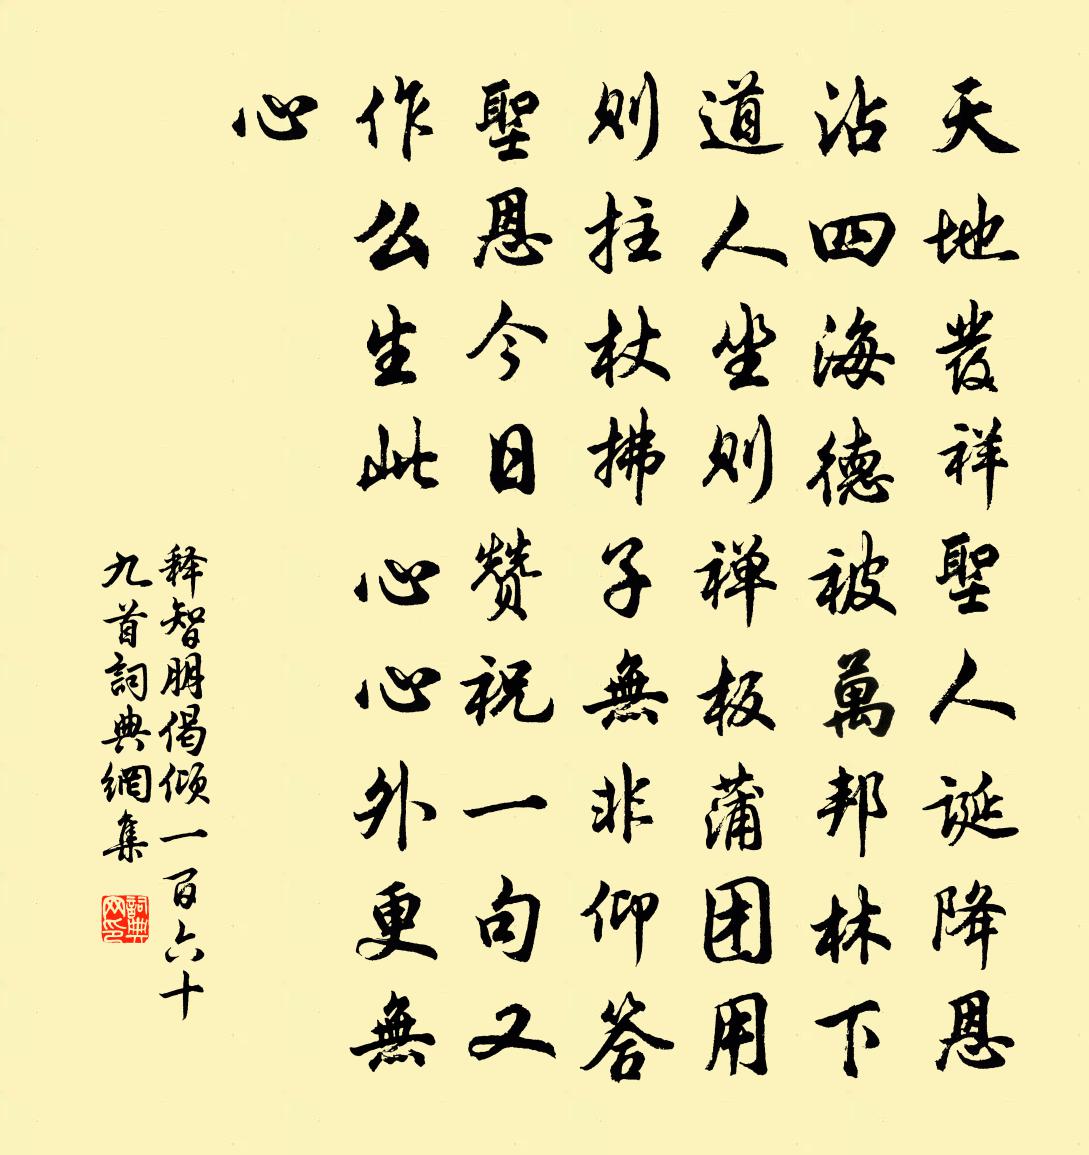 天地發祥聖人誕降恩
沾四海德被萬邦林下
道人坐則禅板蒲团用
則拄杖拂子無非仰答
聖恩今日赞祝一句又
作么生此心心外更無
心
释智朋偈倾一百六十
九首詞典網集
詞典网印